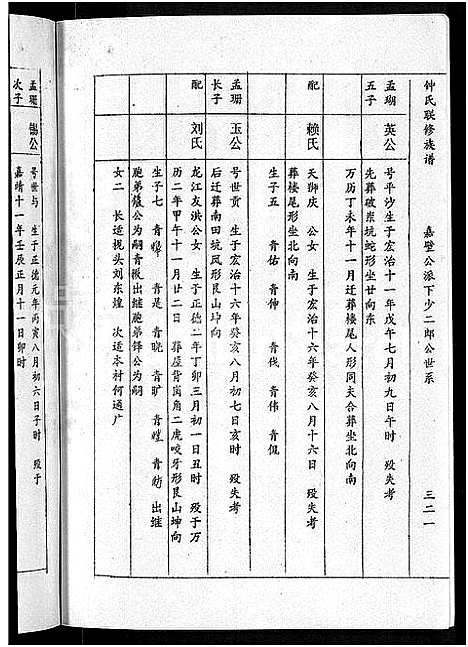 钟氏联修族谱 嘉璧公派下少二郎公世系 三二一
孟瑚五子 英公
号平沙生于宏治十一年戊午七月初九日午时 殁失考
先葬破岽坑蛇形坐甘向东
万历丁未年十一月迁葬楼尾人形同夫合葬坐北向南
配 赖氏
天狮庆 公女 生于宏治十六年癸亥八月十六日 殁失考
葬楼尾形坐北向南
生子五 青佑 青伸 青伐 青伟 青侃
孟珊长子 玉公
号世贡 生于宏治十六年癸亥八月初七日亥时 殁失考
后迁葬南田坑凤形艮山坤向
配 刘氏
龙江友洪公女 生于正德二年丁卯三月初一日丑时 殁于万
历二年甲午十一月廿二日 葬屋背岗角二虎咬牙形艮山坤向
生子七 青暲 青是 青晓 青旷 青 青 出继
胞弟 公为嗣青 出继胞弟铎公为嗣
女二 长适视头刘东煌 次适本村何通广
孟珊次子 公
号世与 生于正德元年丙寅八月初六日子时 殁于
嘉靖十一年壬辰正月十一日卯时